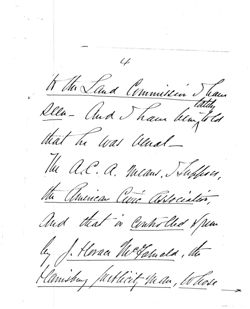 4
to the Land Commission I have
lately
seen - And I have being told
that he was venal -
The A.C.A. means, I suppose,
the American Civic Association,
And that is controlled & run
by J. Horace McFarland, the
Harrisburg publicity man, whose